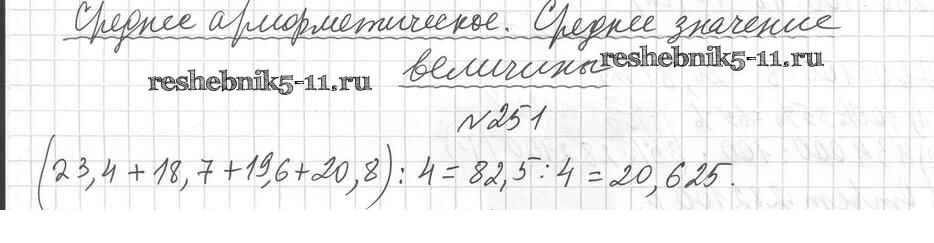 Среднее арифметическое. Среднее значение
величины
reshebnik5-11.ru
reshebnik5-11.ru
№251
(23,4+18,7+19,6+20,8):4=82,5:4=20,625.